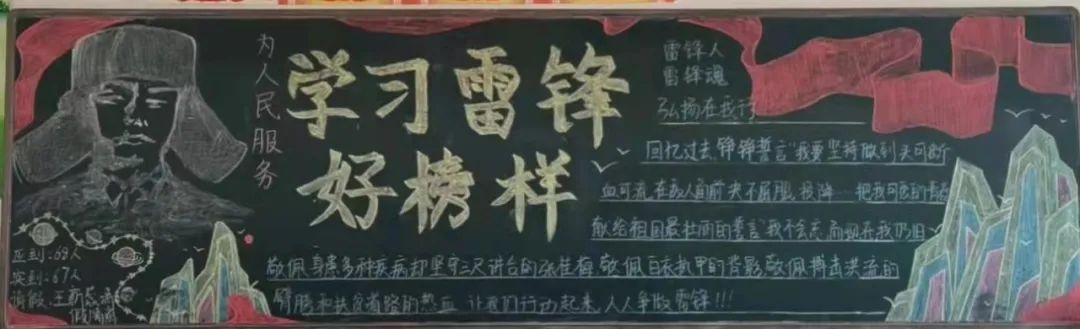 为人民服务
学习雷锋
好榜样
雷锋人
雷锋魂
弘扬在我行
回忆过去,铮铮誓言"我要坚持做到头可断
血可流,在敌人面前决不屈服,投降…把我可爱的
献给祖国最壮丽的誓言"我不会忘,而现在我仍旧
敬佩身患多种疾病却坚守三尺讲台的张桂梅,敬佩白衣执甲的背影,敬佩搏击洪流的
臂膀和扶贫道路的热血,让我们行动起来,人人争做雷锋!!!
应到:68人
实到:67人
请假:王